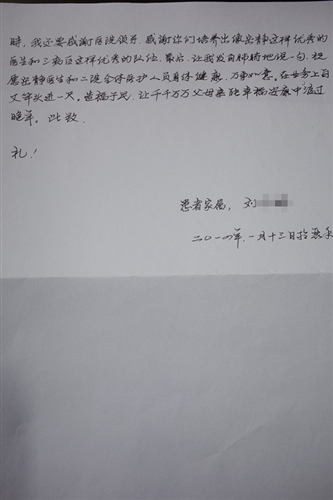 时，我还要感谢医院领导，感谢你们培养出像宏静这样优秀的
医生和三病区这样优秀的队伍。最后，让我发自肺腑地说一句，祝
愿宏静医生和二院全体医护人员身体健康，万事如意。在业务上百
尺竿头进一尺。造福于民，让千千万万父母亲能幸福安康中渡过
晚年。此致
礼！
患者家属，刘
二〇一四年，一月十三日